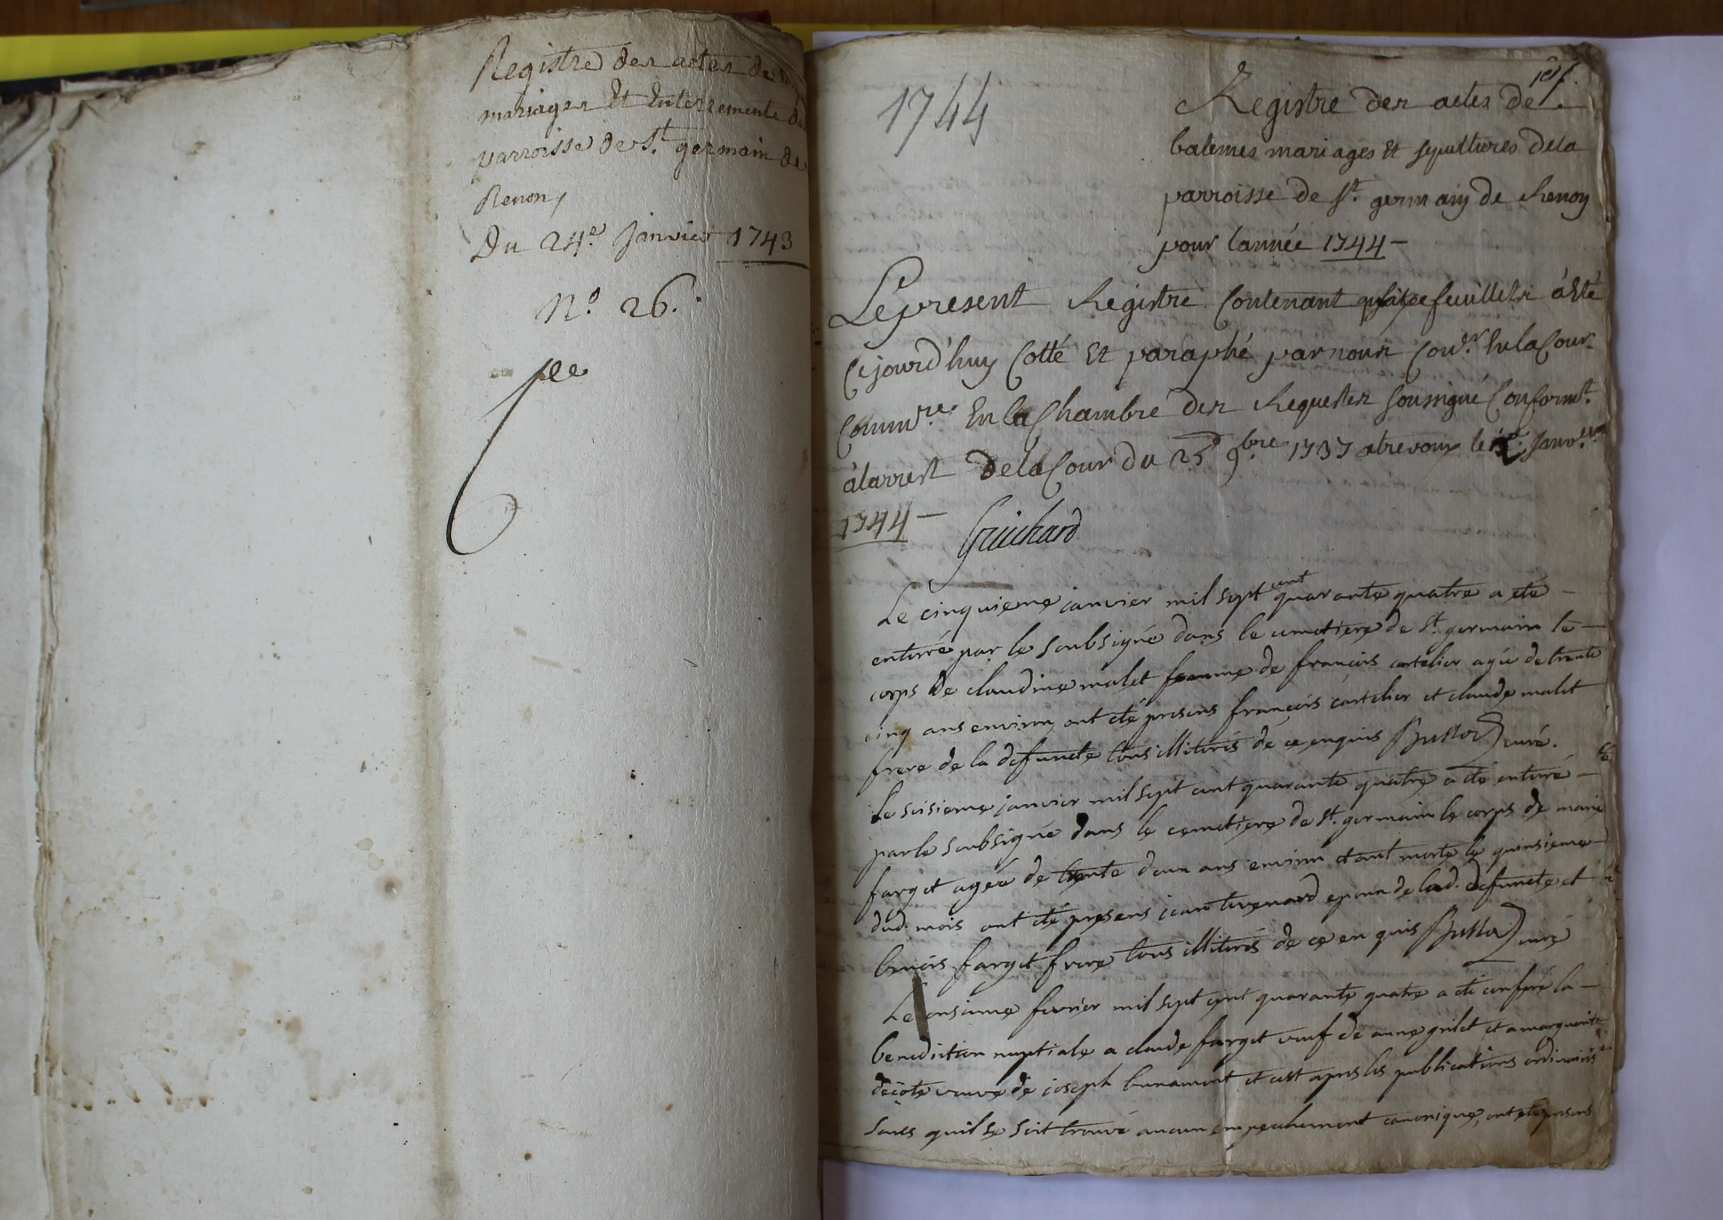 Registre des actes de
mariages Et Enterrements de
parroisse de St. germain de
Renon,
Du 24e. Janvier 1743
No. 26.
1744
1er f.
Registre des actes de
batemes mariages Et sepultures dela
parroisse de St. germain de Renon
pour lannée 1744 -
Le present Registre Contenant quatre feuillets à Eté
Cejourd'huy Cotté Et paraphé par nous Conr. En la Cour
Commre. En la Chambre des Requestes soussigné Conformt.
à larrest De la Cour du 25 9bre 1737 a trevoux le Janvier
1744 -
Guichard
Le cinquieme janvier mil sept cent quarante quatre a ete -
enterré par le soubsigné dans le cemetiere de St. germain le -
corps de claudine malet femme de francois cartelier agée de trente
cinq ans environ ont été presens francois cartelier et claude malet
frere de la defuncte tous illiterés de ce enquis curé.
Le seisieme janvier mil sept cent quarante quatre a été enterré -
par le soubsigné dans le cemetiere de St. germain le corps de marie
farget agée de trente deux ans environ etant morte le quinsieme
dud. mois ont été presens jean tevenard epoux de lad. defuncte et
benois farget frere tous illiterés de ce en quis curé
Le onsieme fevrier mil sept cent quarante quatre a eté conferé la -
benediction nuptiale a claude farget veuf de anne grilet et a marguerite
decote veuve de joseph bunamant et cest apres les publications ordinaires
sans quil se soit trouvé aucun empechement canonique, ont eté presens